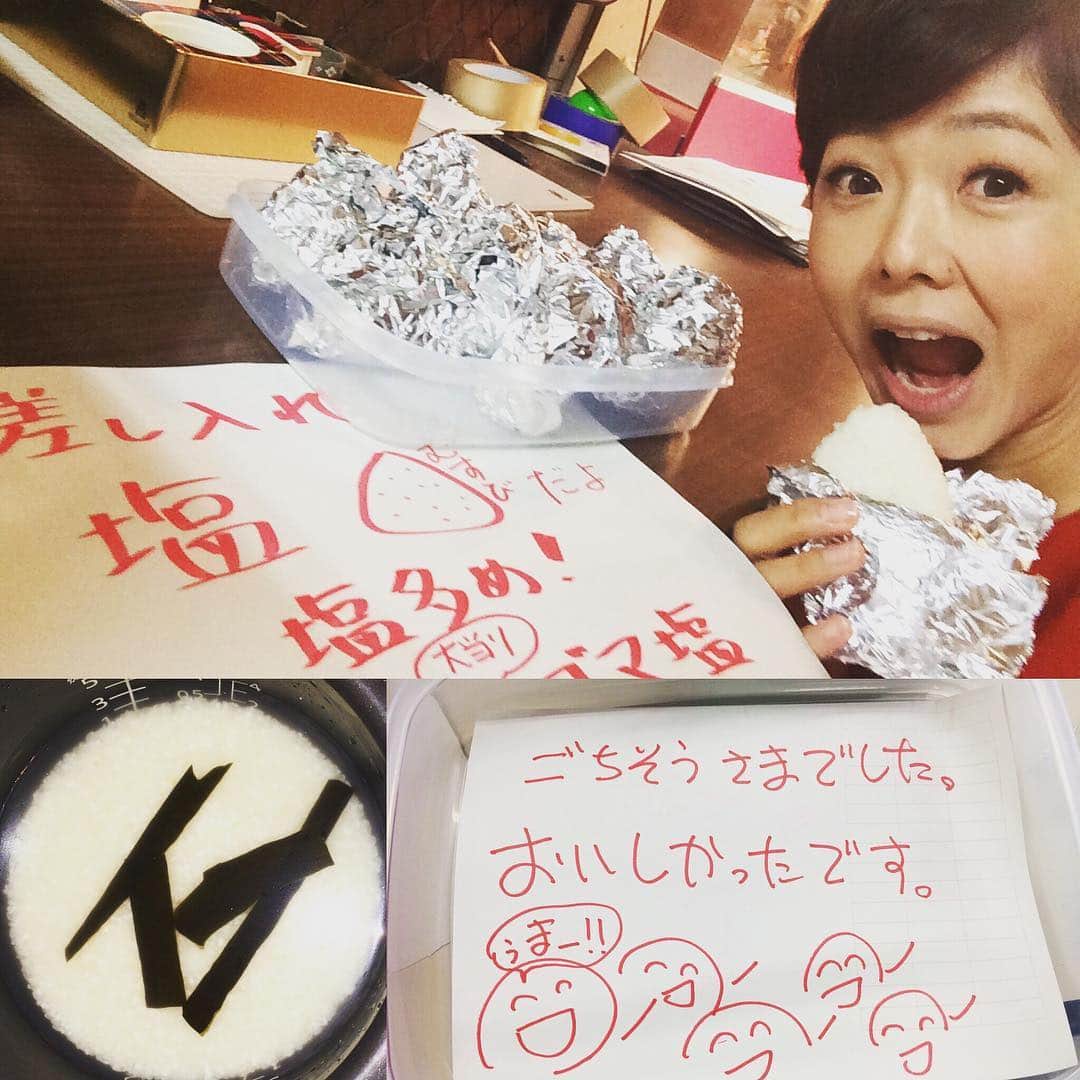 差し入れ
むすび
だよ
塩
塩多め!
大当り
ゴマ塩
3
0.5
ごちそうさまでした。
おいしかったです。
うまー!!